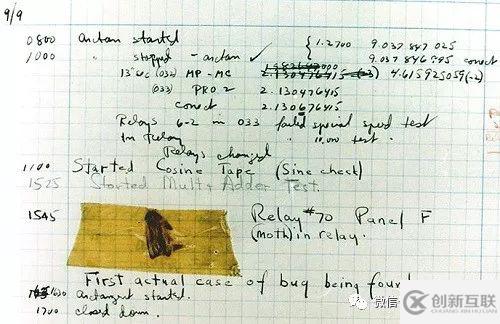 9/9
0800 antan started
1000 " stopped - antan ✓ { 1.2700 9.037 847 025
9.037 846 995 correct
13"uc (032) MP-MC 2.130476415 (-3) 4.615925059(-2)
(033) PRO 2 2.130476415
correct 2.130676415
Relays 6-2 in 033 failed special speed test
In Relay " 10.000 test.
Relays changed
1100 Started Cosine Tape (Sine check)
1525 Started Mult + Adder Test.
1545 Relay #70 Panel F
(moth) in relay.
First actual case of bug being found
1630 antangent started.
1700 closed down.
微信
创新互联